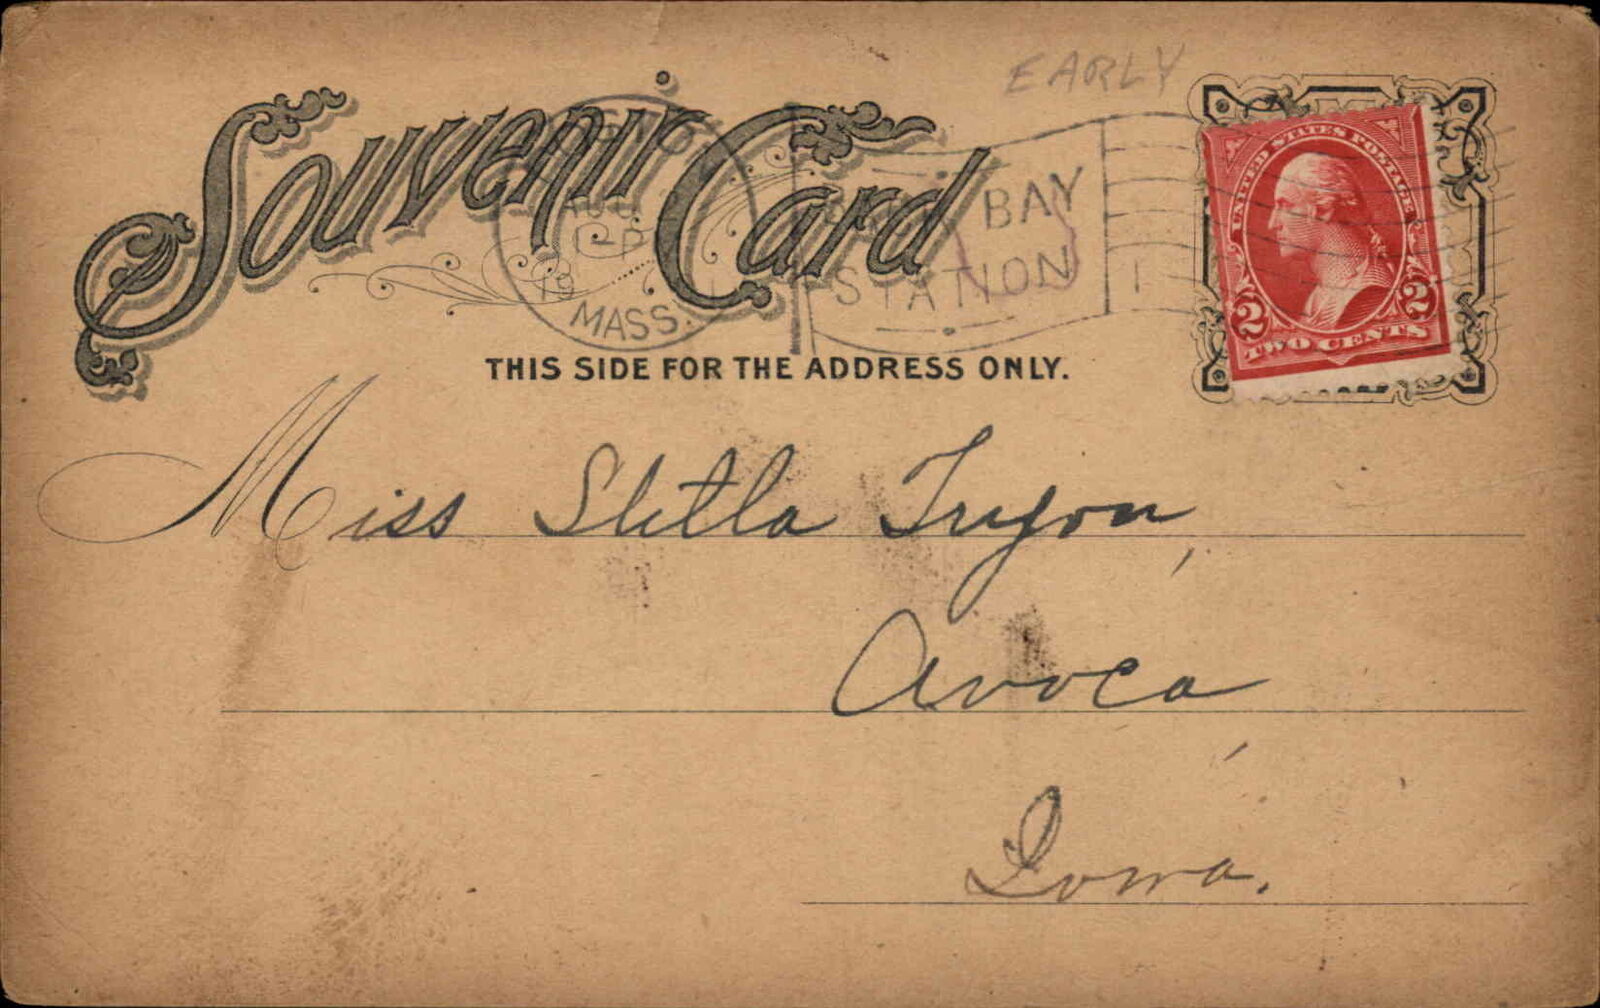 EARLY
Souvenir Card
BOSTON
AUG
1-P
19
MASS.
BACK BAY
STATION
1
UNITED STATES POSTAGE
2 2
TWO CENTS
THIS SIDE FOR THE ADDRESS ONLY.
Miss Stella Tryon,
Avoca,
Iowa.